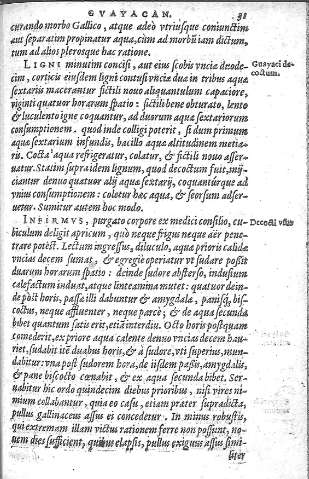 GVAYACAN. 38
curando morbo Gallico, atque adeò vtriusque coniunctim
aut separatim propinatur aqua, cùm ad morbũ iam dictum,
tum ad alios plerosque hac ratione.
LIGNI minutim concisi, aut eius scobis vncia duode-
cim, corticis eiusdem ligni contusi vncia due in tribus aquæ
sextariis macerantur fictili nouo aliquantulum capaciore,
viginti quatuor horarum spatio: fictili bene obturato, lento
& luculento igne coquantur, ad duorum aquæ sextariorum
consumptionem. quod inde colligi poterit, si dum primum
aquæ sextarium infundis, bacillo aquæ altitudinem metia-
ris. Cocta aqua refrigeratur, colatur, & fictili nouo asser-
uatur. Statim supra idem lignum, quod decoctum fuit, inij-
ciantur denuo quatuor alij aquæ sextarij, coquanturque ad
vnius consumptionem: colatur hæc aqua, & seorsum adser-
uatur. Sumitur autem hoc modo.
INFIRMVS, purgato corpore ex medici consilio, cu-
biculum deligit apricum, quò neque frigus neque aër pene-
trare potest. Lectum ingressus, diluculo, aquæ prioris calidæ
vncias decem sumat, & egregiè operiatur vt sudare possit
duarum horarum spatio: deinde sudore absterso, indusium
calefactum induat, atque linteamina mutet: quatuor dein-
de pòst horis, passæ illi dabuntur & amygdalæ, panisq́; bis-
coctus, neque affluenter, neque parcè; & de aqua secunda
bibet quantum satis erit, etiã interdiu. Octo horis postquam
comederit, ex priore aqua calente denuo vncias decem hau-
riet, sudabit itẽ duabus horis, & à sudore, vti superius, mun-
dabitur: vna post sudorem hora, de iisdem passis, amygdalis,
& pane biscocto cœnabit, & ex aqua secunda bibet. Ser-
uabitur hic ordo quindecim diebus prioribus, nisi vires ni-
mium collabantur, quia eo casu, etiam præter supradicta,
pullus gallinaceus assus ei concedetur. In minus robustis,
qui extremam illam victus rationem ferre non possunt, no-
uem dies sufficient, quibus elapsis, pullus exiguus assus simi-
liter
Guayaci de-
coctum.
Decocti vsus